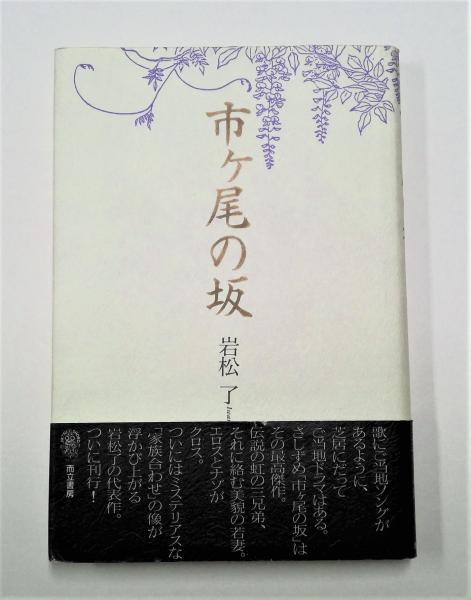 市ヶ尾の坂
岩松 了
歌にご当地ソングが
あるように、
芝居にだって
ご当地ドラマはある。
さしずめ「市ヶ尾の坂」は
その最高傑作。
伝説の虹の三兄弟、
それに絡む美貌の若妻。
エロスとナゾが
クロス。
ついにはミステリアスな
「家族合わせ」の像が
浮かび上がる
岩松了の代表作。
ついに刊行!
而立書房